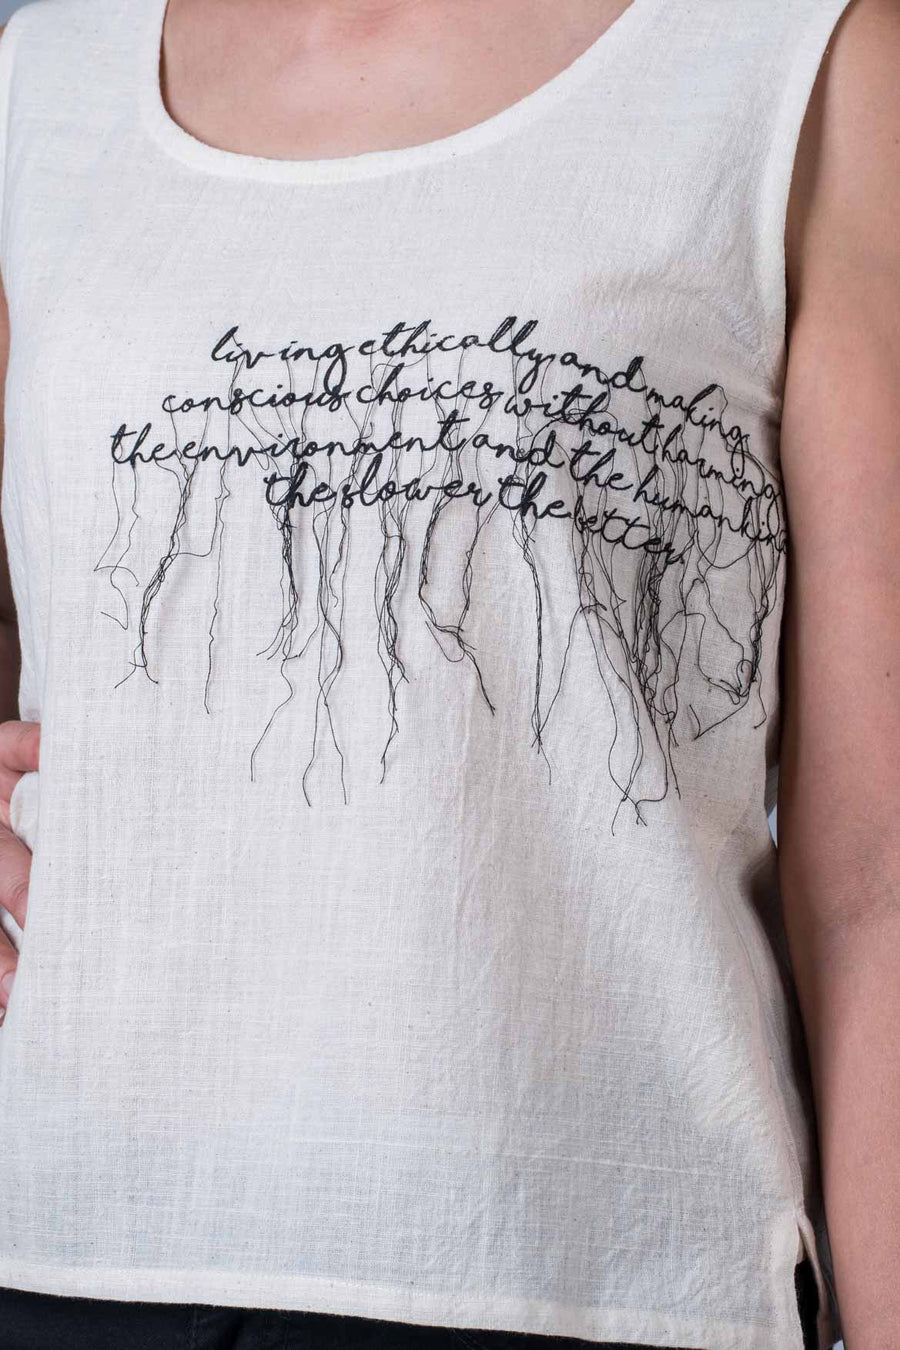 living ethically and making
conscious choices without harming
the environment and the humankind
the slower the better